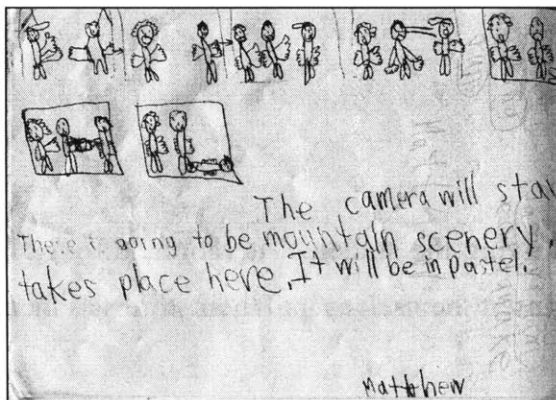 The camera will sta
There is going to be mountain scenery.
takes place here. It will be in pastel.
Matthew